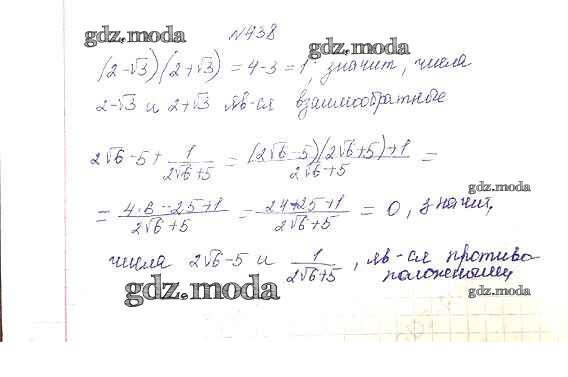 gdz.moda
№438
gdz.moda
(2-√3)(2+√3) = 4-3 = 1, значит, числа
2-√3 и 2+√3 яв-ся взаимообратные
2√6-5+ 1/(2√6+5) = ((2√6-5)(2√6+5)+1)/(2√6+5) =
gdz.moda
= (4·6-25+1)/(2√6+5) = (24-25+1)/(2√6+5) = 0, значит,
gdz.moda
числа 2√6-5 и 1/(2√6+5), яв-ся противо
положеными
gdz.moda
gdz.moda